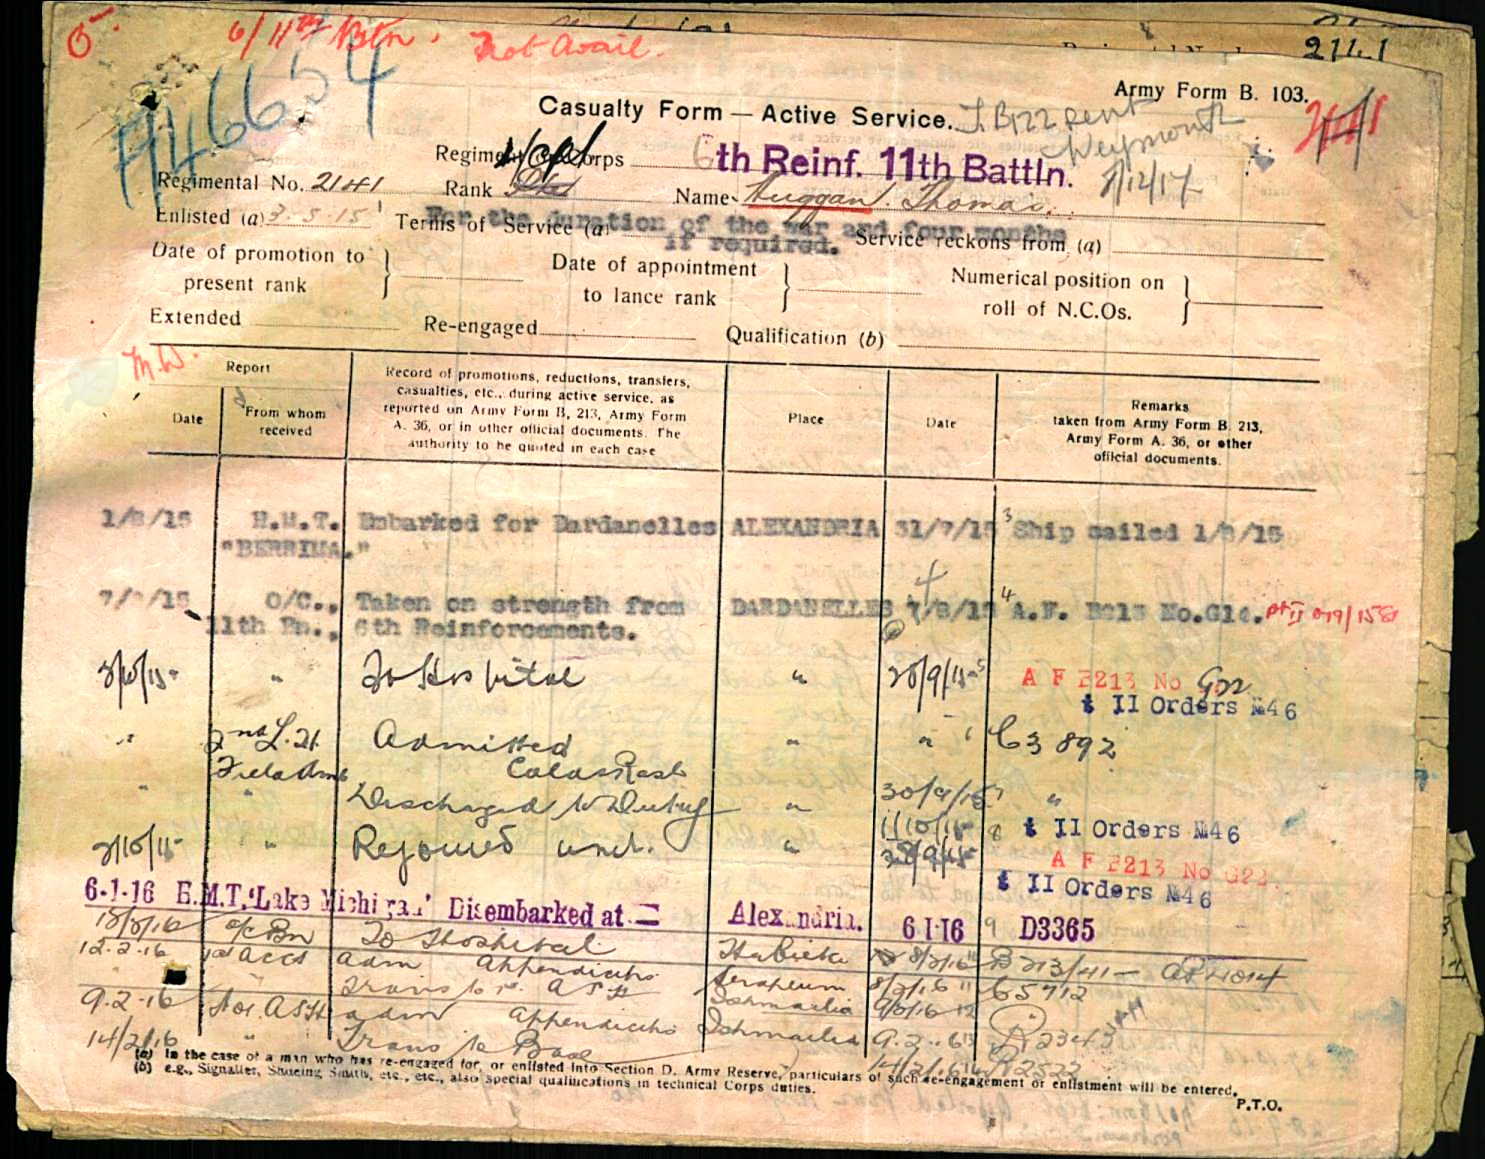 6/11th Btn. Not Avail.
2141
Army Form B. 103.
Casualty Form — Active Service.
Weymouth
Regiment or Corps 6th Reinf. 11th Battln. 7/12/17
Regimental No. 2141 Rank Name Huggan. Thomas.
Enlisted (a) 3.5.15 Terms of Service (a) For the duration of the war and four months if required. Service reckons from (a)
Date of promotion to present rank } Date of appointment to lance rank } Numerical position on roll of N.C.Os. }
Extended Re-engaged Qualification (b)
Report
Date
From whom received
Record of promotions, reductions, transfers,
casualties, etc., during active service, as
reported on Army Form B, 213, Army Form
A. 36, or in other official documents. The
authority to be quoted in each case
Place
Date
Remarks
taken from Army Form B. 213,
Army Form A. 36, or other
official documents.
1/8/15 H.M.T. Embarked for Dardanelles ALEXANDRIA 31/7/15 Ship sailed 1/8/15
"BERRIMA."
7/8/15 O/C., Taken on strength from DARDANELLES 7/8/15 A.F. B213 No.G14.
11th Bn., 6th Reinforcements.
3/10/15 " To Hospital " 28/9/15 A F B213 No G22
II Orders №46
" 2nd L.H. Admitted " " C3892
Field Amb
" " Discharged to Duty " 30/9/15 "
1/10/15 II Orders №46
2/10/15 " Rejoined unit. " A F B213 No G22
II Orders №46
6-1-16 H.M.T. 'Lake Michigan' Disembarked at Alexandria. 6 1 16 D3365
o/c Bn To Hospital Habieta 8/2/16
12.2.16 1st ACCS adm Appendicitis Serapeum 8/2/16 C5712
" " Trans to A S H Ishmailia 9/2/16
9.2.16 No1. ASH adm Appendicitis Ishmailia 9.2.16
14/2/16 " Trans to Base 14/2/16
(a) In the case of a man who has re-engaged for, or enlisted into Section D. Army Reserve, particulars of such re-engagement or enlistment will be entered.
(b) e.g., Signaller, Shoeing Smith, etc., etc., also special qualifications in technical Corps duties.
P.T.O.